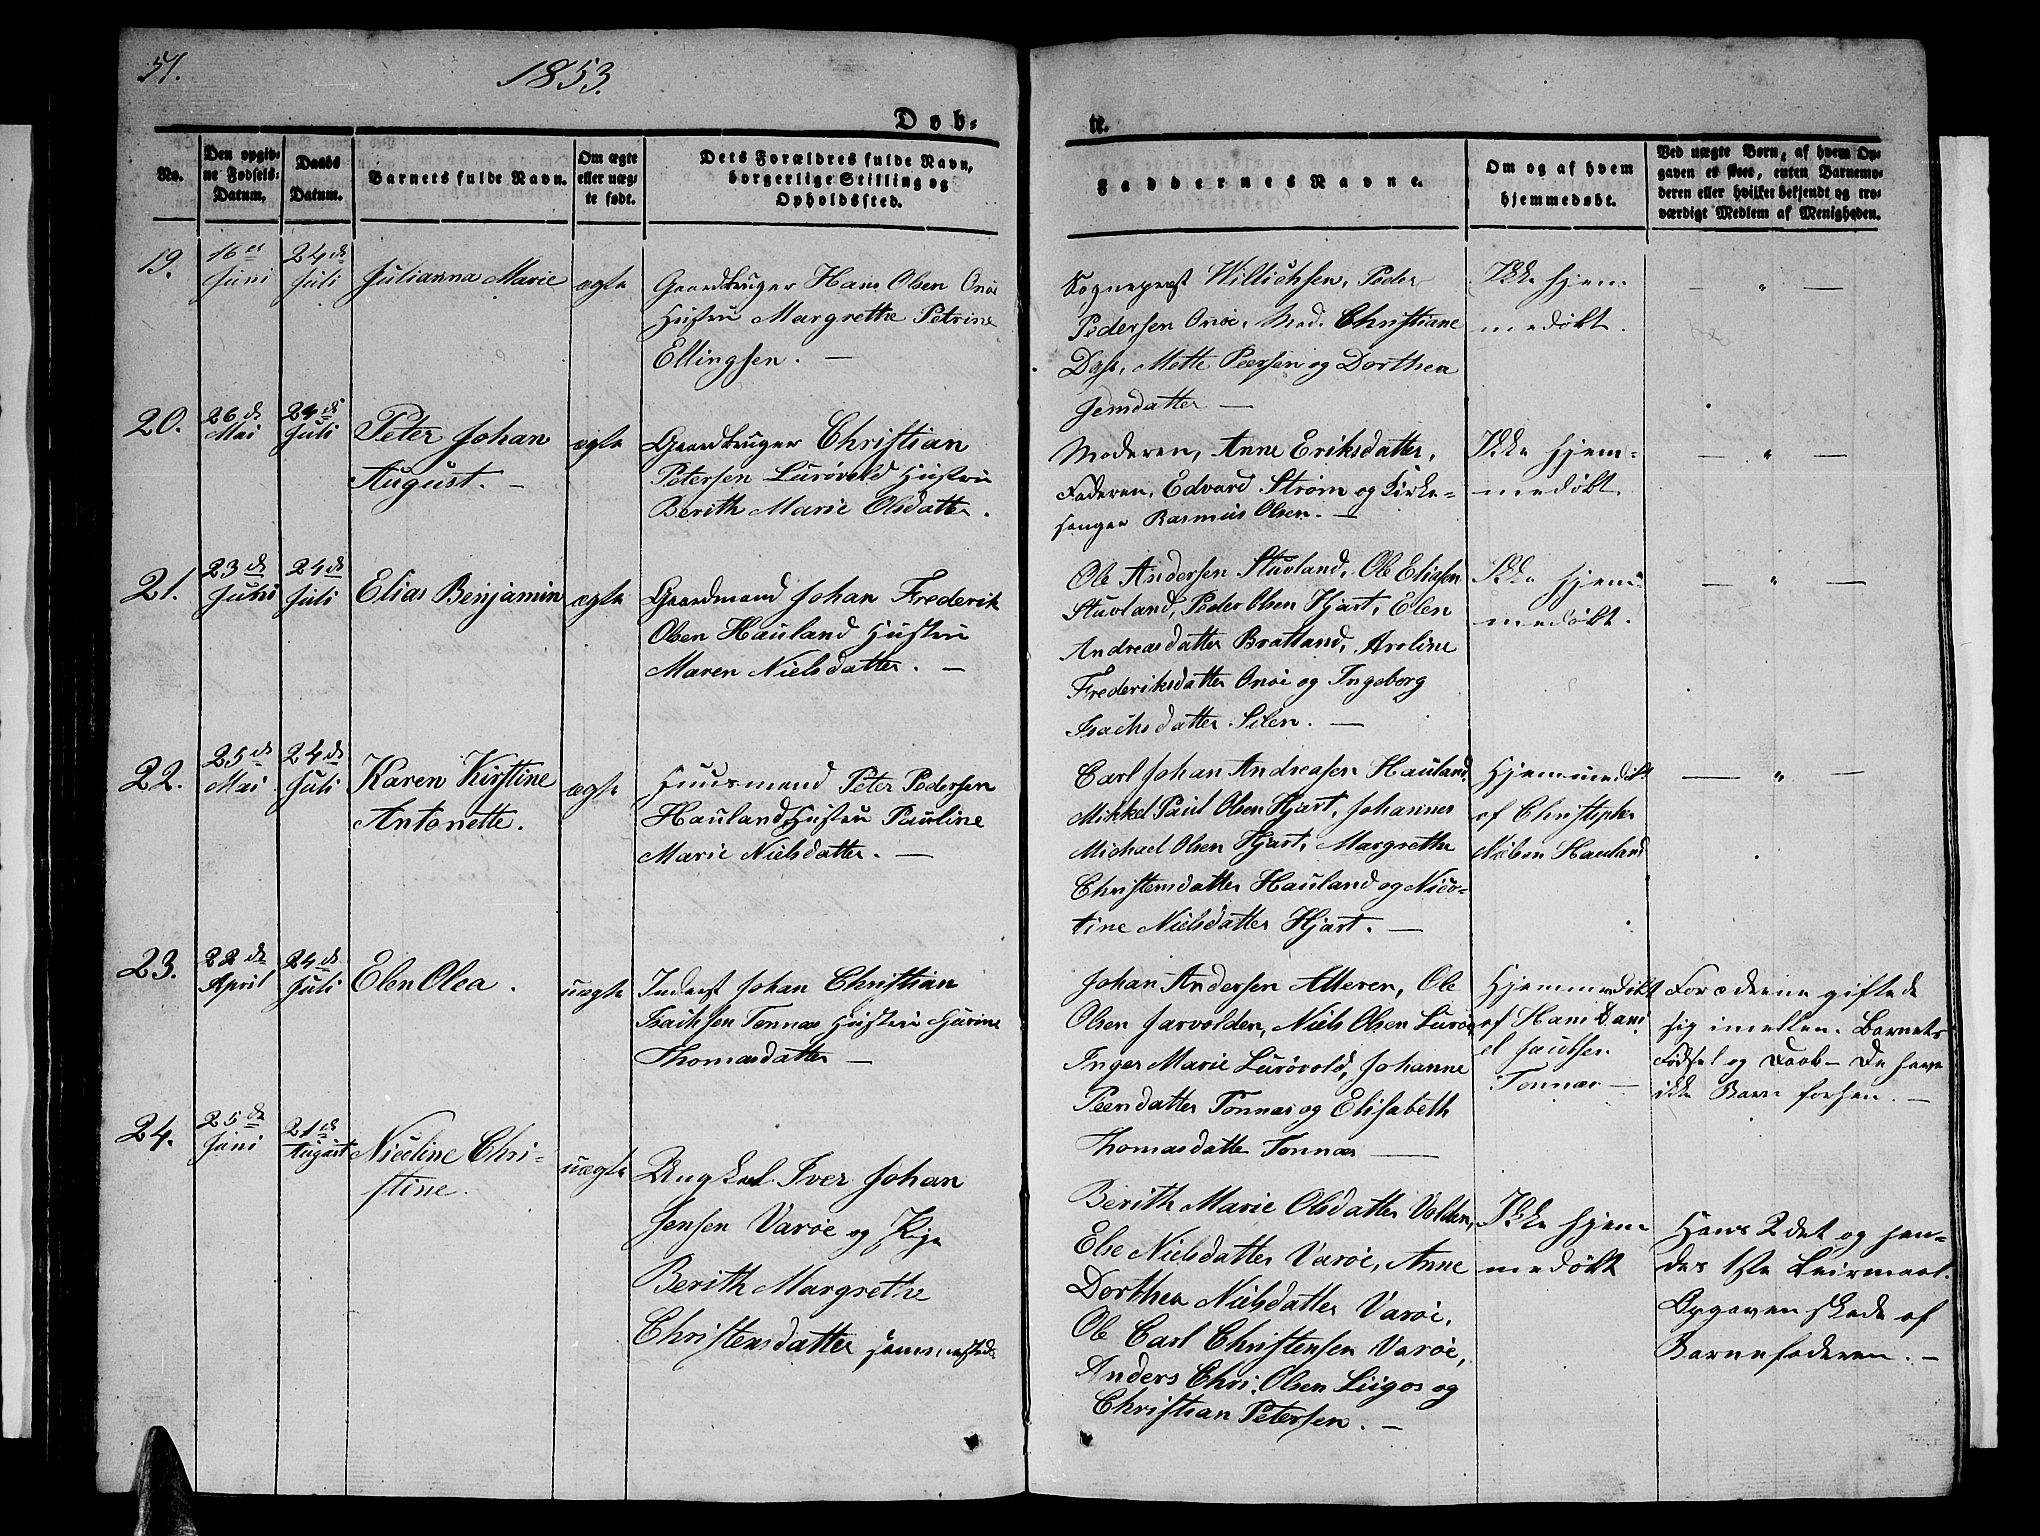 51.
1853.
Døb-
te.
No.
Den opgiv-
ne Fødsels-
Datum.
Daabs
Datum.
Barnets fulde Navn.
Om ægte
eller uæg-
te født.
Dets Forældres fulde Navn,
borgerlige Stilling og
Opholdssted.
Faddernes Navne.
Om og af hvem
hjemmedøbt.
Ved uægte Børn, af hvem Op-
gaven er skeet, enten Barnemo-
deren eller hvilket bekjendt og tro-
værdigt Medlem af Menigheden.
19.
16de
Juni
24de
Juli
Julianna Marie
ægte
Gaardbruger Hans Olsen Onøe
Hustru Margrethe Petrine
Ellingsen. —
Sognepræst Willichsen, Peder
Pedersen Onøe, Mad. Christiane
Dass, Mette Peersen og Dorthea
Jensdatter —
Ikke hjem
medøbt.
— " —
20.
26de
Mai
24de
Juli
Peter Johan
August. —
ægte
Gaardbruger Christian
Petersen Lurøvold Hustru
Berith Marie Olsdatter.
Moderen, Anne Eriksdatter,
Faderen, Edvard Strøm og Kirke-
sanger Rasmus Olsen. —
Ikke hjem-
medøbt.
— " —
21.
23de
Juni
24de
Juli
Elias Benjamin
ægte
Gaardmand Johan Frederik
Olsen Hauland Hustru
Maren Nielsdatter. —
Ole Andersen Stuvland, Ole Eliasen
Stuvland, Peder Olsen Hjart, Elen
Andreasdatter Bratland, Aroline
Frederiksdatter Onøe og Ingeborg
Isachsdatter Silen. —
Ikke hjem
medøbt.
— " —
22.
25de
Mai
24de
Juli
Karen Kirstine
Antonette.
ægte
Huusmand Peter Pedersen
Hauland Hustru Pauline
Marie Nielsdatter. —
Carl Johan Andreasen Hauland,
Mikkel Paul Olsen Hjart, Johannes
Michael Olsen Hjart, Margrethe
Christensdatter Hauland og Nico-
tine Nielsdatter Hjart. —
Hjemmedøbt
af Christopher
Nilsen Hauland
— " —
23.
22de
April
24de
Juli
Elen Olea.
uægte
Inderst Johan Christian
Isachsen Tonnes Hustru Hurine
Thomasdatter —
Johan Andersen Alteren, Ole
Olsen Jarvolden, Niels Olsen Lurøe
Inger Marie Lurøvold, Johanne
Peersdatter Tonnes og Elisabeth
Thomasdatter Tonnes —
Hjemmedøbt
af Hans Dani
el Jacobsen
Tonnes —
Forældrene giftede
sig imellem Barnets
Fødsel og Daab — De have
ikke Barn forhen. —
24.
25de
Juni
21de
August
Nicoline Chri-
stine.
uægte
Ungkarl Iver Johan
Jensen Varøe og Pige
Berith Margrethe
Christensdatter sammesteds
Berith Marie Olsdatter Volden,
Else Nielsdatter Varøe, Anne
Dorthea Nielsdatter Varøe,
Ole Carl Christensen Varøe,
Anders Chri. Olsen Liigos og
Christian Petersen. —
Ikke hjem
medøbt
Hans 2det og hen-
des 1ste Leiermaal.
Opgaven skede af
Barnefaderen. —